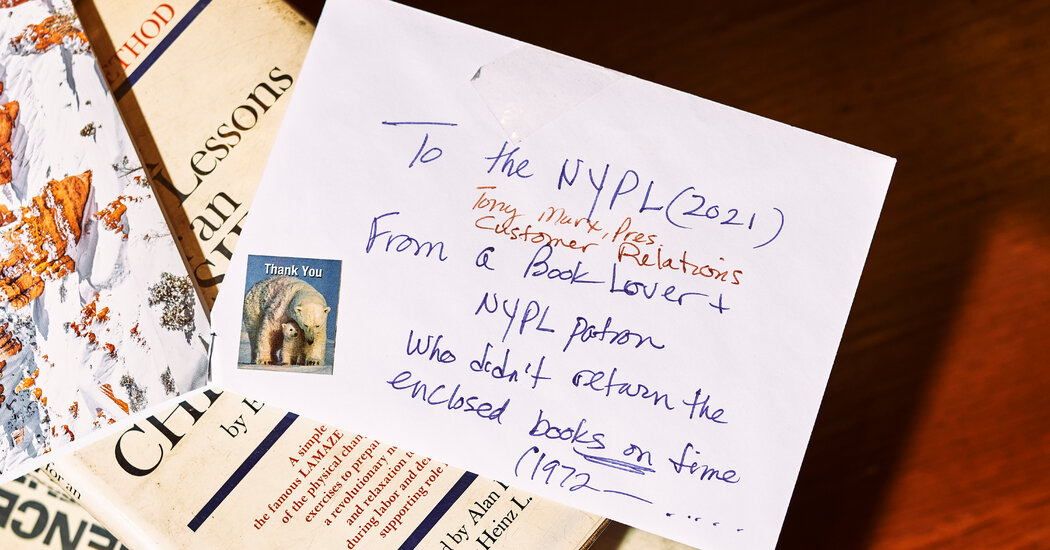 To the NYPL (2021)
Tony Marx, Pres
Customer Relations
From a Book Lover +
NYPL patron
who didn't return the
enclosed books on time
(1972
Thank You
THOD
Lessons
an
by E
A simple
the famous LAMAZE
of the physical chan
exercises to prepar
a revolutionary n
and relaxation t
during labor and de
supporting role
d by Alan
Heinz L
for an
ENCE